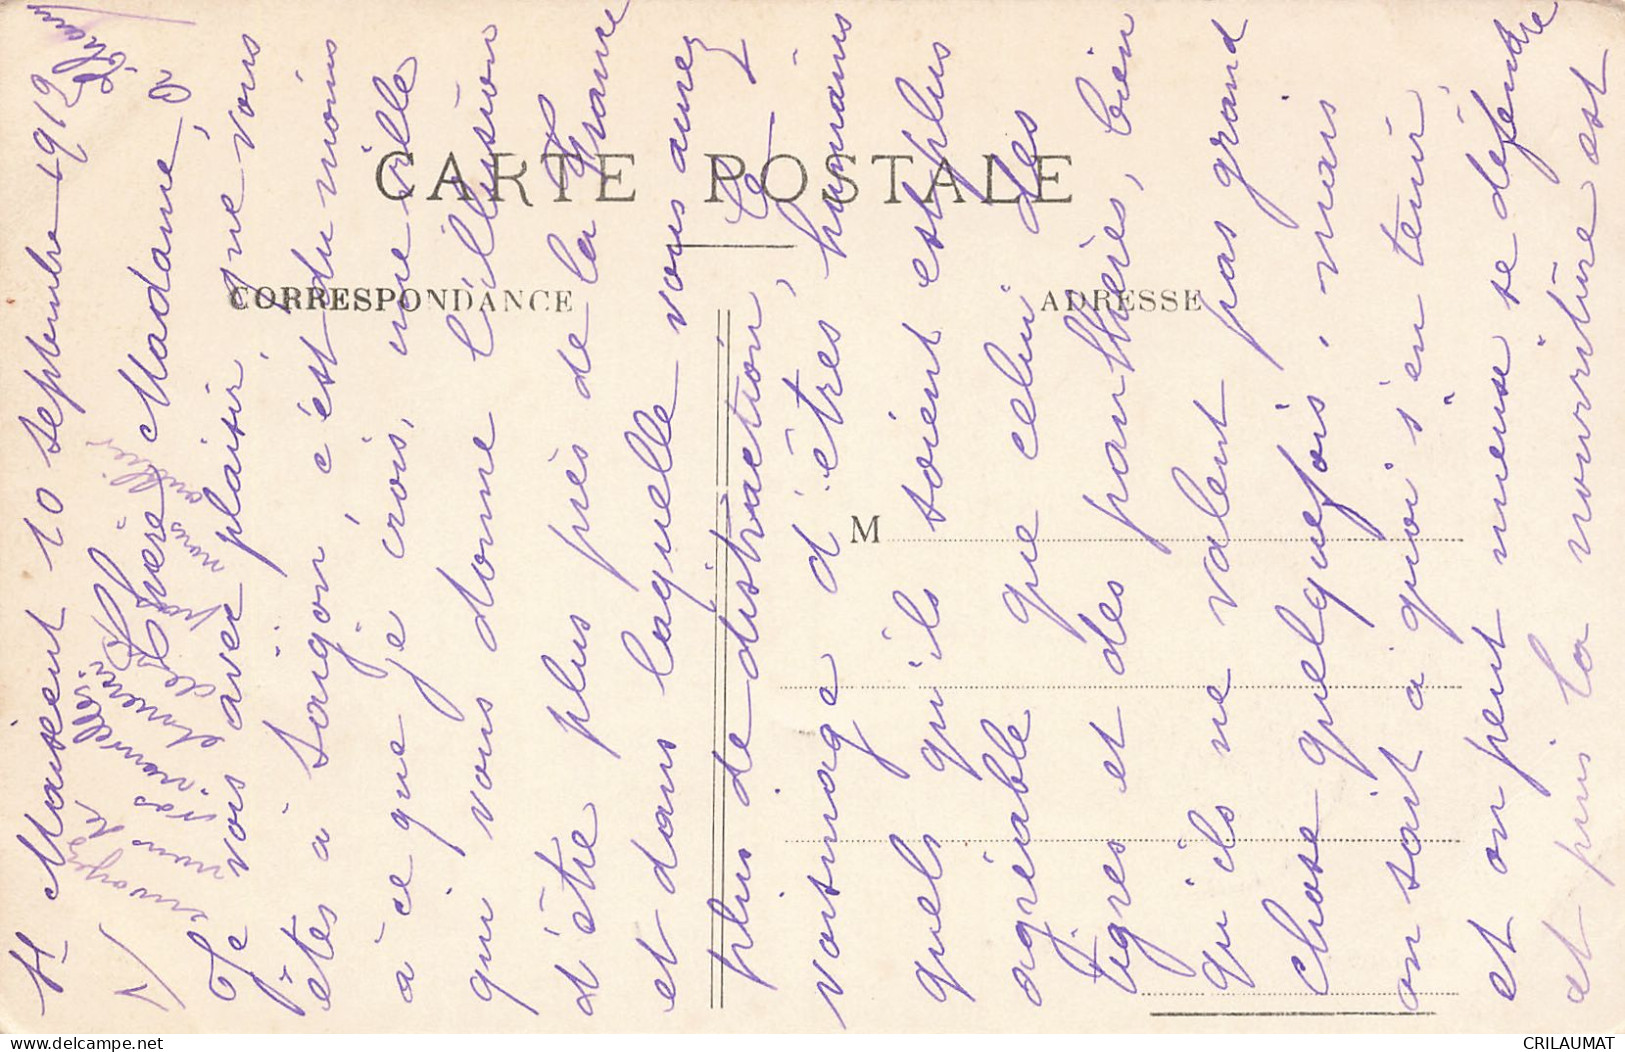 St Maixent 10 septembre 1912
1/ Chère Madame,
Je vois avec plaisir, que vous
êtes à Saïgon, c'est du moins
à ce que je crois, une ville
qui vous donne l'illusion
d'être plus près de la France
et dans laquelle vous aurez
plus de distraction, le
voisinage d'êtres humains
quels qu'ils soient est plus
agréable que celui des
tigres et des panthères, bien
qu'ils ne valent pas grand
chose quelquefois, mais
on sait à quoi s'en tenir
et on peut mieux se défendre
et puis la nourriture est
envoyez
nous vos nouvelles
de
pas nous oublier
CARTE POSTALE
CORRESPONDANCE
ADRESSE
M
delcampe.net
CRILAUMAT